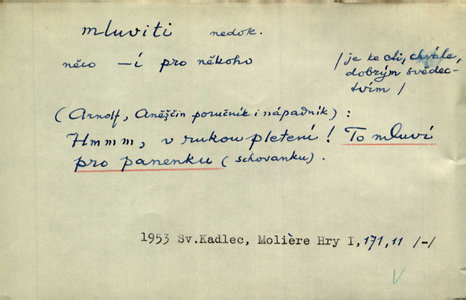 mluviti nedok.
něco —í pro někoho /je ke cti, chvále,
dobrým svědec-
tvím /
(Arnolf, Anežčin poručník i nápadník) :
Hmmm, v rukou pletení! To mluví
pro panenku (schovanku).
1953 Sv.Kadlec, Molière Hry I, 171, 11 /-/
V